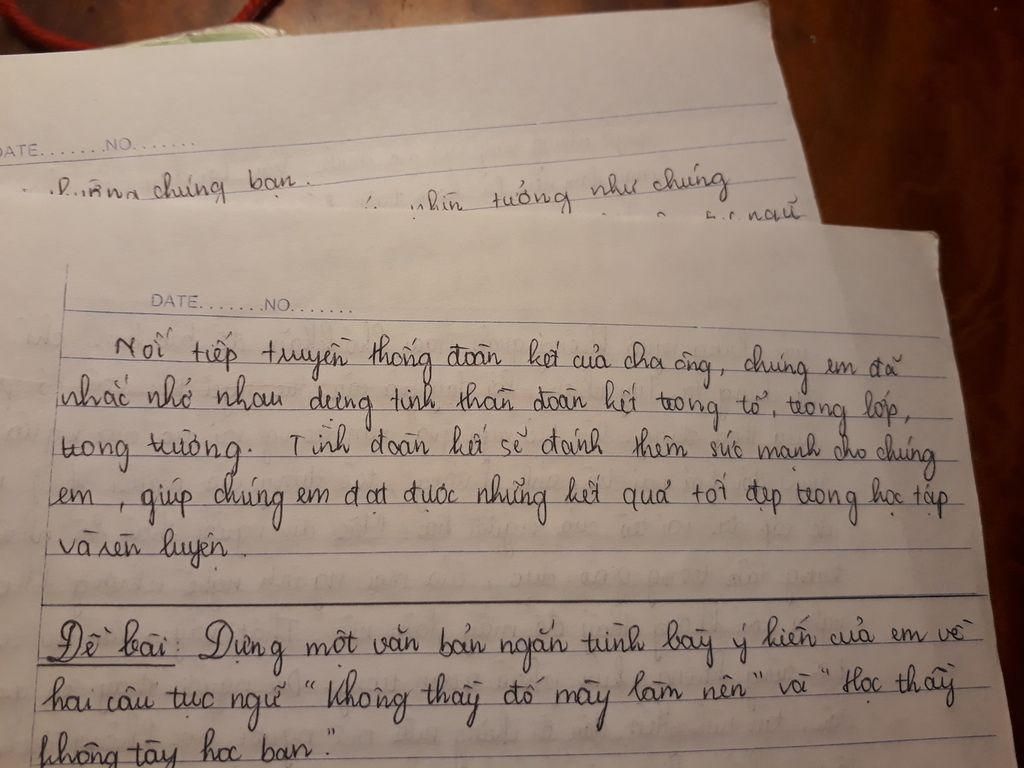 DATE.......NO.......
chúng bạn.
tưởng như chúng
ngũ
DATE.......NO.......
Nối tiếp truyền thống đoàn kết của cha ông, chúng em đã
nhắc nhở nhau dựng tinh thần đoàn kết trong tổ, trong lớp,
trong trường. Tình đoàn kết sẽ đánh thêm sức mạnh cho chúng
em, giúp chúng em đạt được những kết quả tốt đẹp trong học tập
và rèn luyện.
Đề bài: Dựng một văn bản ngắn trình bày ý kiến của em về
hai câu tục ngữ "Không thầy đố mày làm nên" và "Học thầy
không tày học bạn."